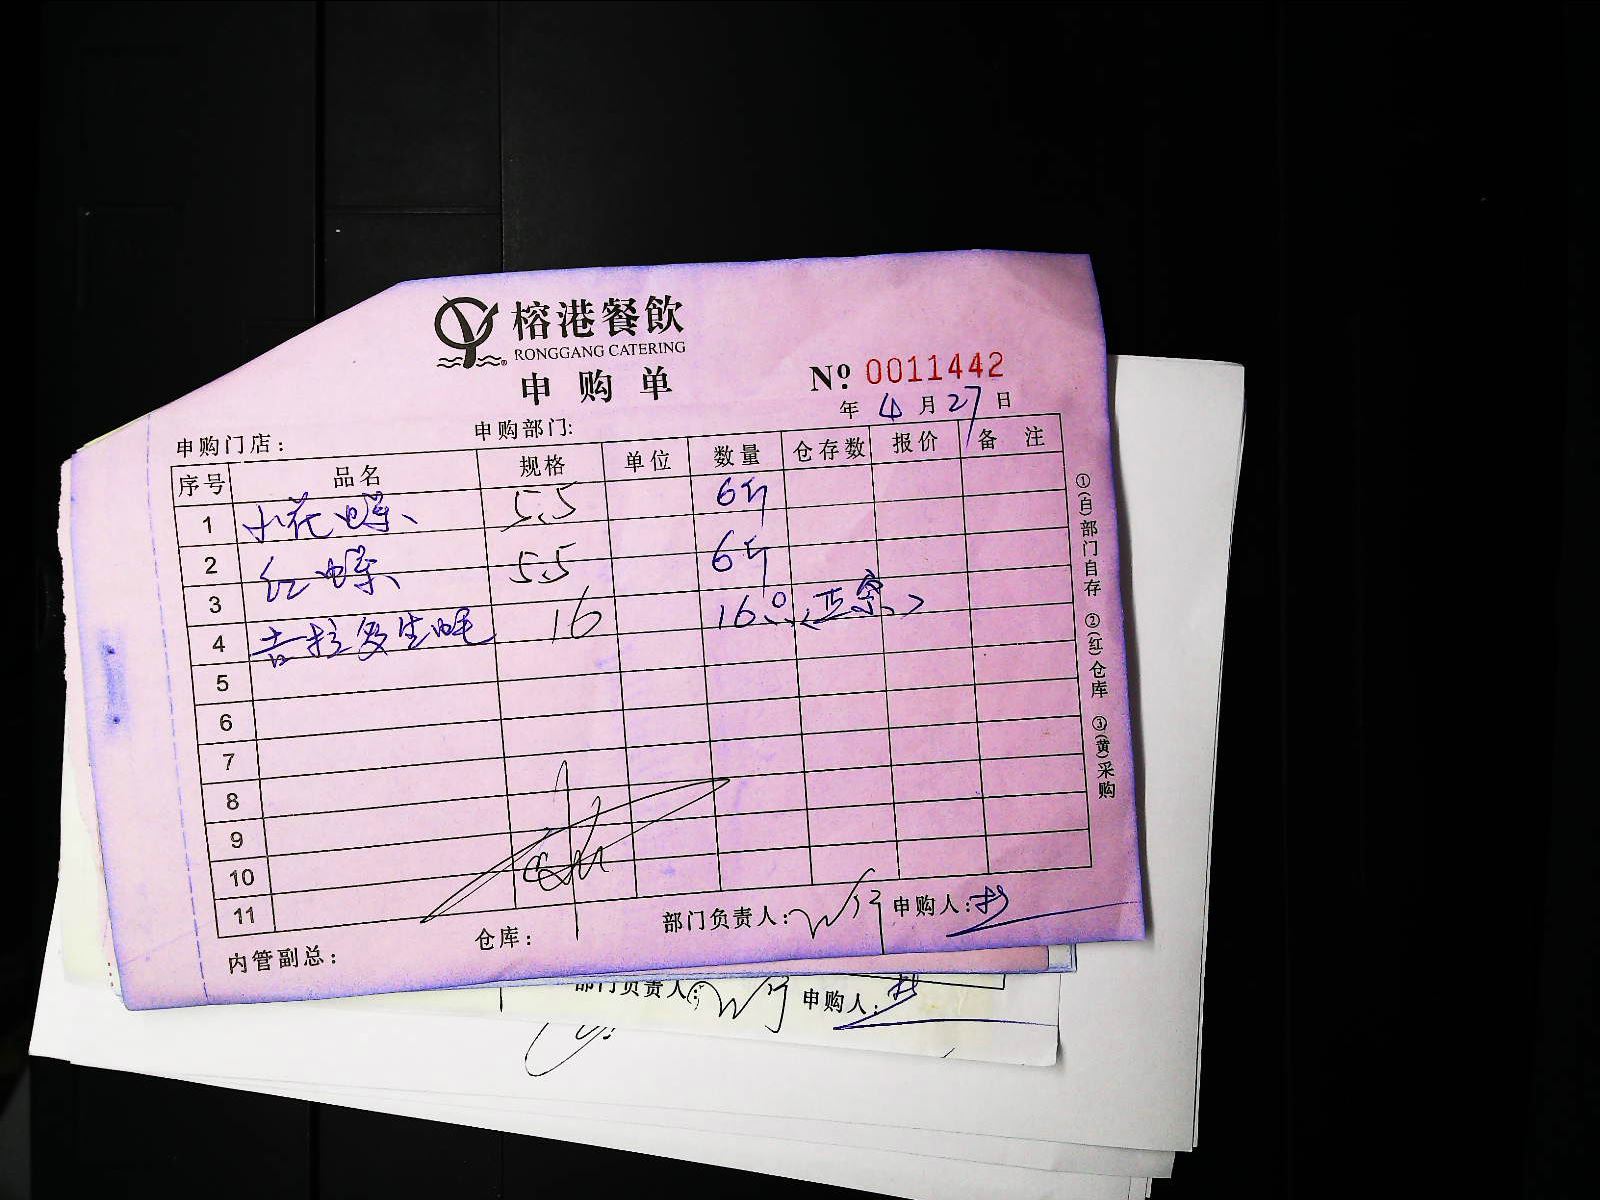 榕港餐飲
RONGGANG CATERING
申购单
Nº 0011442
年 4 月 27 日
申购门店: 申购部门:
序号 品名 规格 单位 数量 仓存数 报价 备注
1 小花螺 5.5 6斤
2 红螺 5.5 6斤
3
4 吉拉多生蚝 16 16只(正宗)
5
6
7
8
9
10
11
内管副总: 仓库: 部门负责人: 申购人:
①(白)部门自存 ②(红)仓库 ③(黄)采购
部门负责人: 申购人: